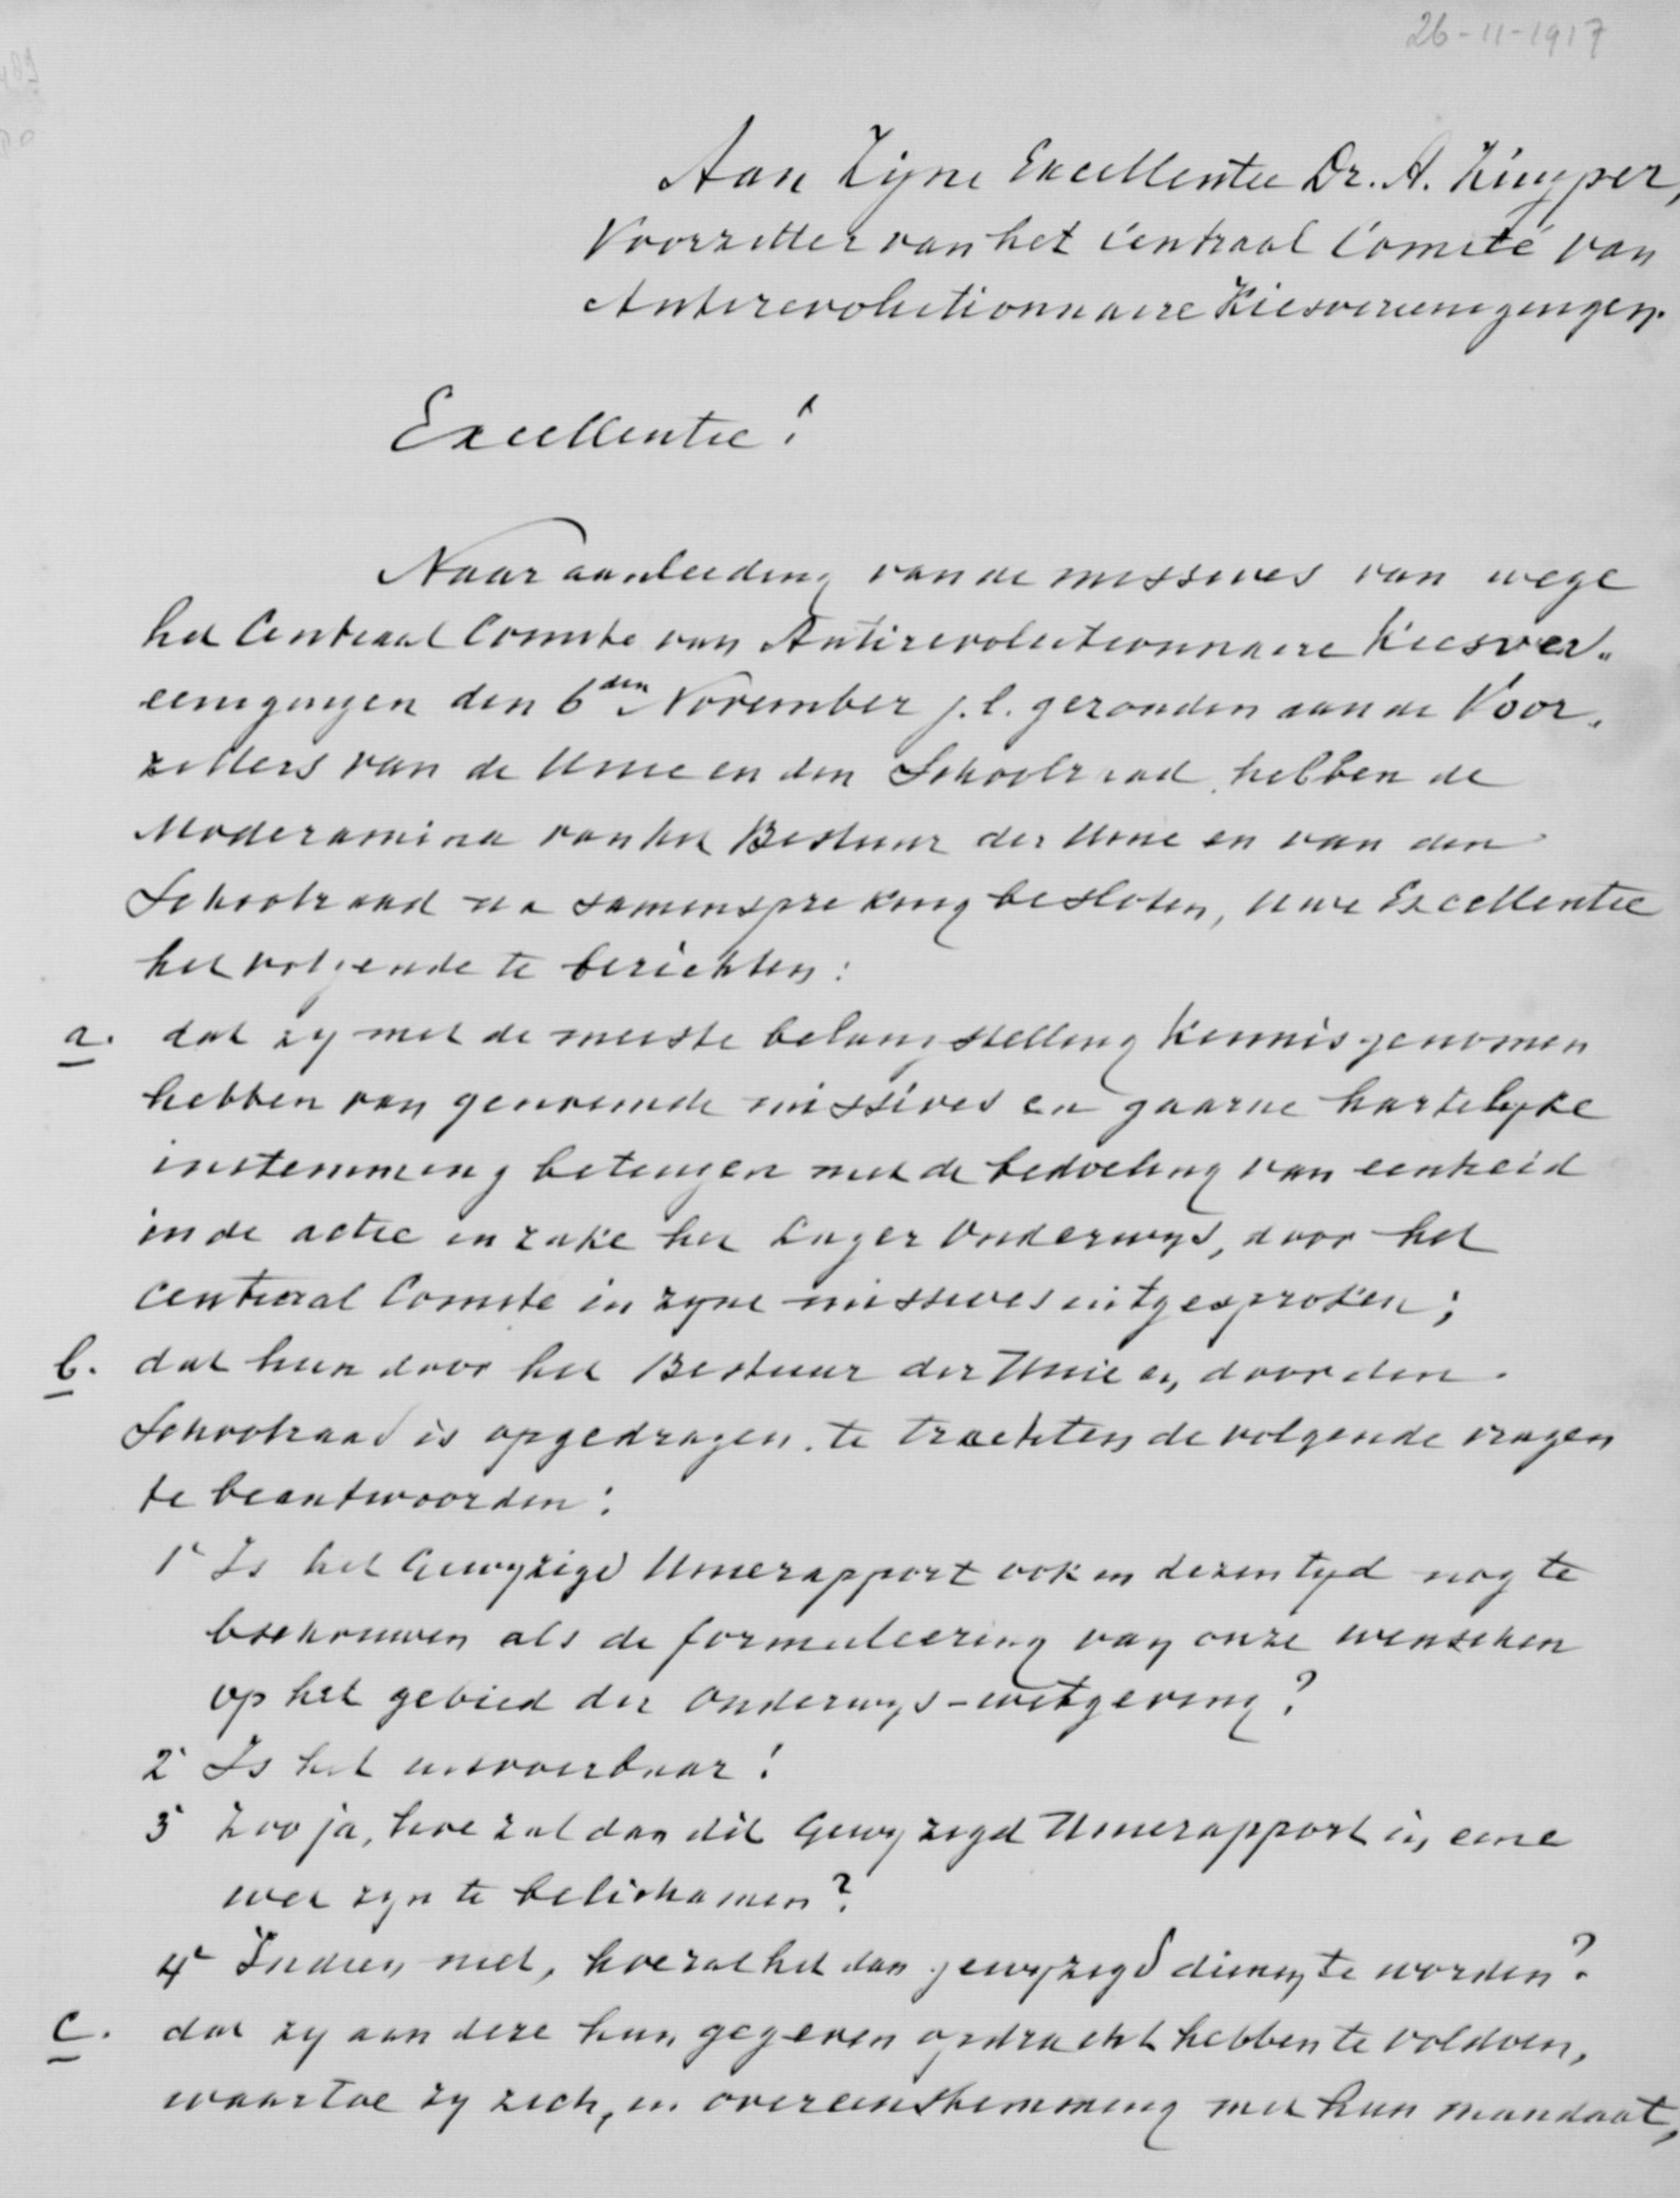 26-11-1917
Aan Zijne Excellentie Dr. A. Kuyper,
Voorzitter van het Centraal Comité van
Antirevolutionnaire Kiesvereenigingen.
Excellentie!
Naar aanleiding van de missives van wege
het Centraal Comite van Antirevolutionnaire Kiesver-
eenigingen den 6den November j.l. gezonden aan de Voor-
zitters van de Unie en den Schoolraad, hebben de
Moderamina van het Bestuur der Unie en van den
Schoolraad na samenspreking besloten, Uwe Excellentie
het volgende te berichten:
a. dat zy met de meeste belangstelling kennis genomen
hebben van genoemde missives en gaarne hartelyke
instemming betuigen met de bedoeling van eenheid
in de actie inzake het Lager Onderwys, door het
Centraal Comite in zyne missives uitgesproken;
b. dat hun door het Bestuur der Unie en door den
Schoolraad is opgedragen te trachten de volgende vragen
te beantwoorden:
1° Is het Gewyzigd Unierapport ook in dezen tyd nog te
beschouwen als de formuleering van onze wenschen
op het gebied der Onderwys-wetgeving?
2° Is het uitvoerbaar?
3° Zoo ja, hoe zal dan dit Gewyzigd Unierapport in eene
wet zyn te belichamen?
4° Indien niet, hoe zal het dan gewyzigd dienen te worden?
c. dat zy aan deze hun gegeven opdracht hebben te voldoen,
waartoe zy zich, in overeenstemming met hun mandaat,